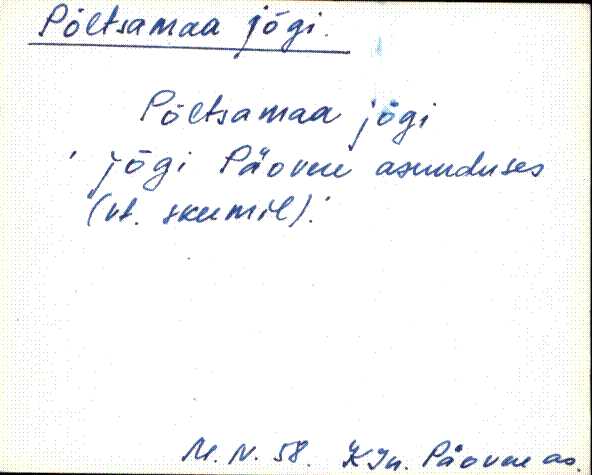 Põltsamaa jõgi.
Põltsamaa jõgi
' jõgi Päovere asunduses
(vt. skeemil).'
M. N. 58. KJn. Päovere as.